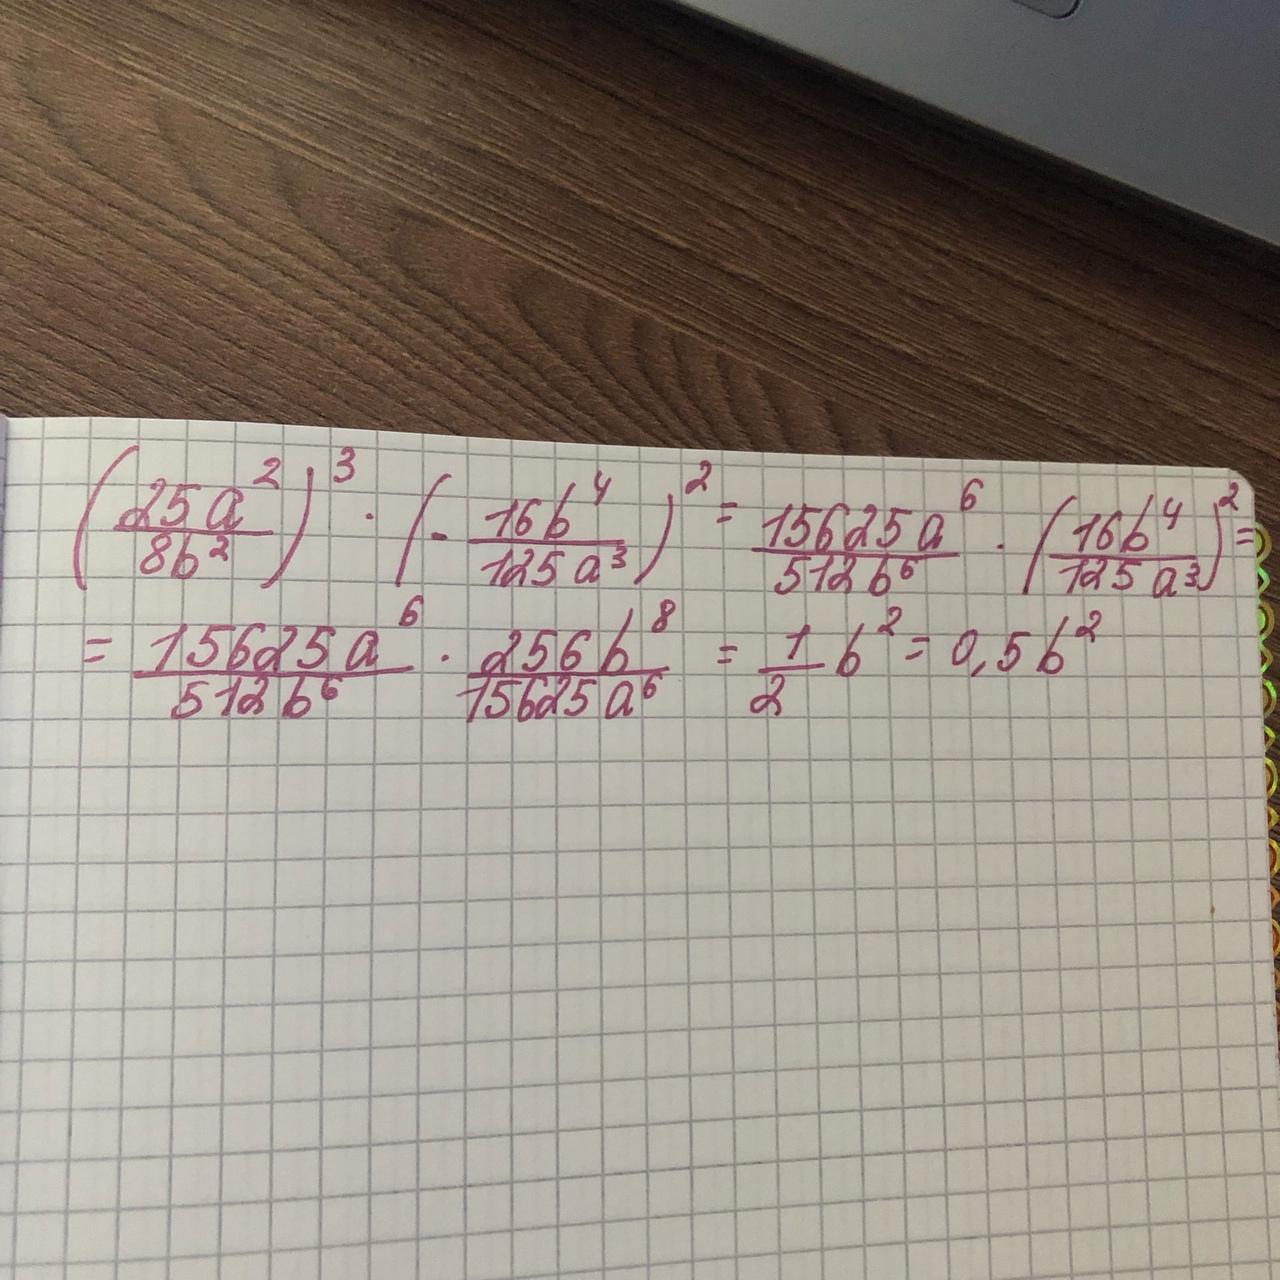 (25a²/8b²)³ · (- 16b⁴/125a³)² = 15625a⁶/512b⁶ · (16b⁴/125a³)² =
= 15625a⁶/512b⁶ · 256b⁸/15625a⁶ = 1/2 b² = 0,5b²